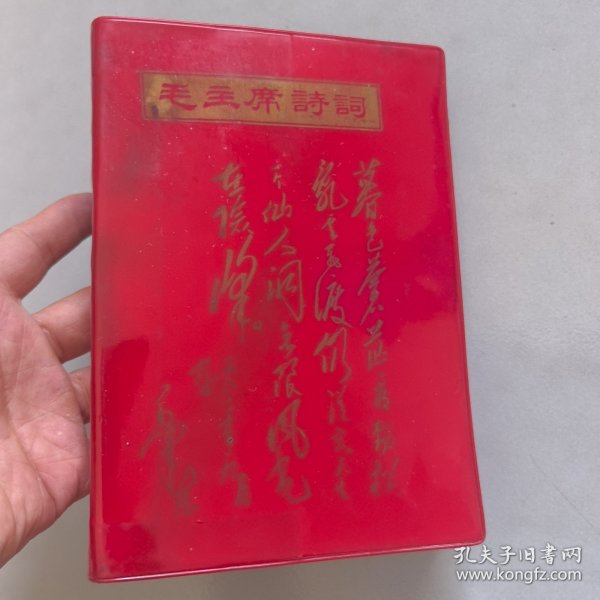 毛主席詩詞
暮色蒼茫看勁松
亂云飞渡仍從容天生一
个仙人洞无限风光
在險峰。
孔夫子旧书网
www.kongfz.com